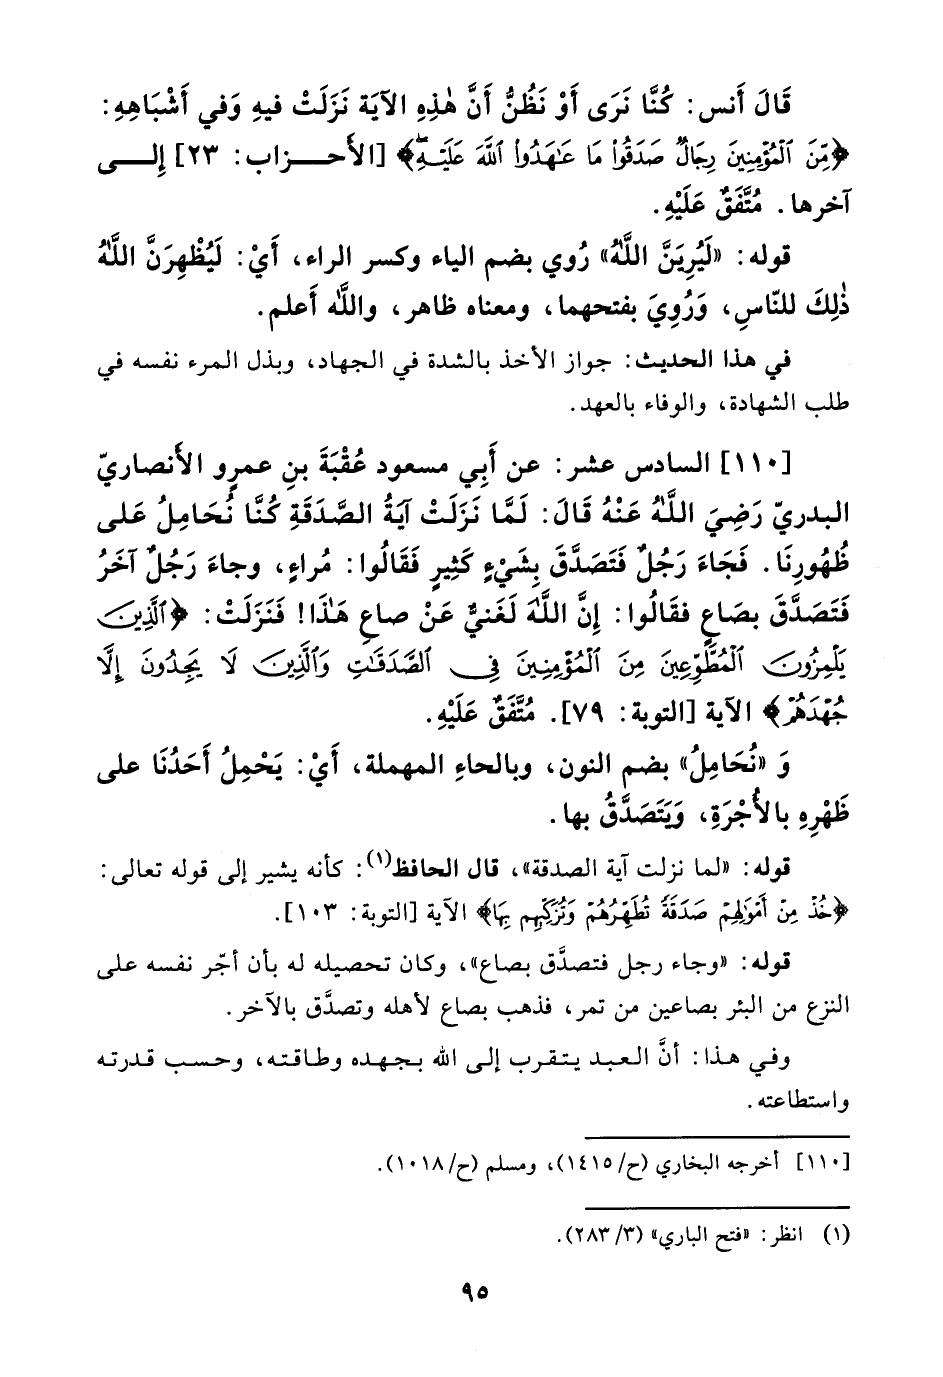 قَالَ أَنس: كُنَّا نَرَى أَوْ نَظُنُّ أَنَّ هٰذِهِ الآيَة نَزَلَتْ فيهِ وَفي أَشْبَاهِهِ:
﴿مِّنَ ٱلْمُؤْمِنِينَ رِجَالٌ صَدَقُوا۟ مَا عَٰهَدُوا۟ ٱللَّهَ عَلَيْهِ﴾ [الأحزاب: ٢٣] إلى
آخرها. مُتَّفَقٌ عَلَيْهِ.
قوله: «لَيُرِيَنَّ اللَّهُ» رُوي بضم الياء وكسر الراء، أَيْ: لَيُظْهِرَنَّ اللَّهُ
ذٰلِكَ للنّاسِ، وَرُوِيَ بفتحهما، ومعناه ظاهر، واللَّه أَعلم.
في هذا الحديث: جواز الأخذ بالشدة في الجهاد، وبذل المرء نفسه في
طلب الشهادة، والوفاء بالعهد.
[١١٠] السادس عشر: عن أَبي مسعود عُقْبَةَ بنِ عمرو الأَنصاريّ
البدريّ رَضِيَ اللَّهُ عَنْهُ قَالَ: لَمَّا نَزَلَتْ آيَةُ الصَّدَقَةِ كُنَّا نُحَامِلُ عَلى
ظُهُورِنَا. فَجَاءَ رَجُلٌ فَتَصَدَّقَ بِشَيْءٍ كَثِيرٍ فَقَالُوا: مُراءٍ، وجاءَ رَجُلٌ آخَرُ
فَتَصَدَّقَ بصَاعٍ فقَالُوا: إِنَّ اللَّهَ لَغَنيٌّ عَنْ صاعِ هَذَا! فَنَزَلَتْ: ﴿ٱلَّذِينَ
يَلْمِزُونَ ٱلْمُطَّوِّعِينَ مِنَ ٱلْمُؤْمِنِينَ فِي ٱلصَّدَقَٰتِ وَٱلَّذِينَ لَا يَجِدُونَ إِلَّا
جُهْدَهُمْ﴾ الآية [التوبة: ٧٩]. مُتَّفَقٌ عَلَيْهِ.
وَ «نُحَامِلُ» بضم النون، وبالحاءِ المهملة، أَيْ: يَحْمِلُ أَحَدُنَا على
ظَهْرِهِ بالأُجْرَةِ، وَيَتَصَدَّقُ بها.
قوله: «لما نزلت آية الصدقة»، قال الحافظ(١): كأنه يشير إلى قوله تعالى:
﴿خُذْ مِنْ أَمْوَٰلِهِمْ صَدَقَةً تُطَهِّرُهُمْ وَتُزَكِّيهِم بِهَا﴾ الآية [التوبة: ١٠٣].
قوله: «وجاء رجل فتصدَّق بصاع»، وكان تحصيله له بأن أجّر نفسه على
النزع من البئر بصاعين من تمر، فذهب بصاع لأهله وتصدَّق بالآخر.
وفي هذا: أنَّ العبد يتقرب إلى الله بجهده وطاقته، وحسب قدرته
واستطاعته.
[١١٠] أخرجه البخاري (ح/١٤١٥)، ومسلم (ح/١٠١٨).
(١) انظر: «فتح الباري» (٢٨٣/٣).
٩٥